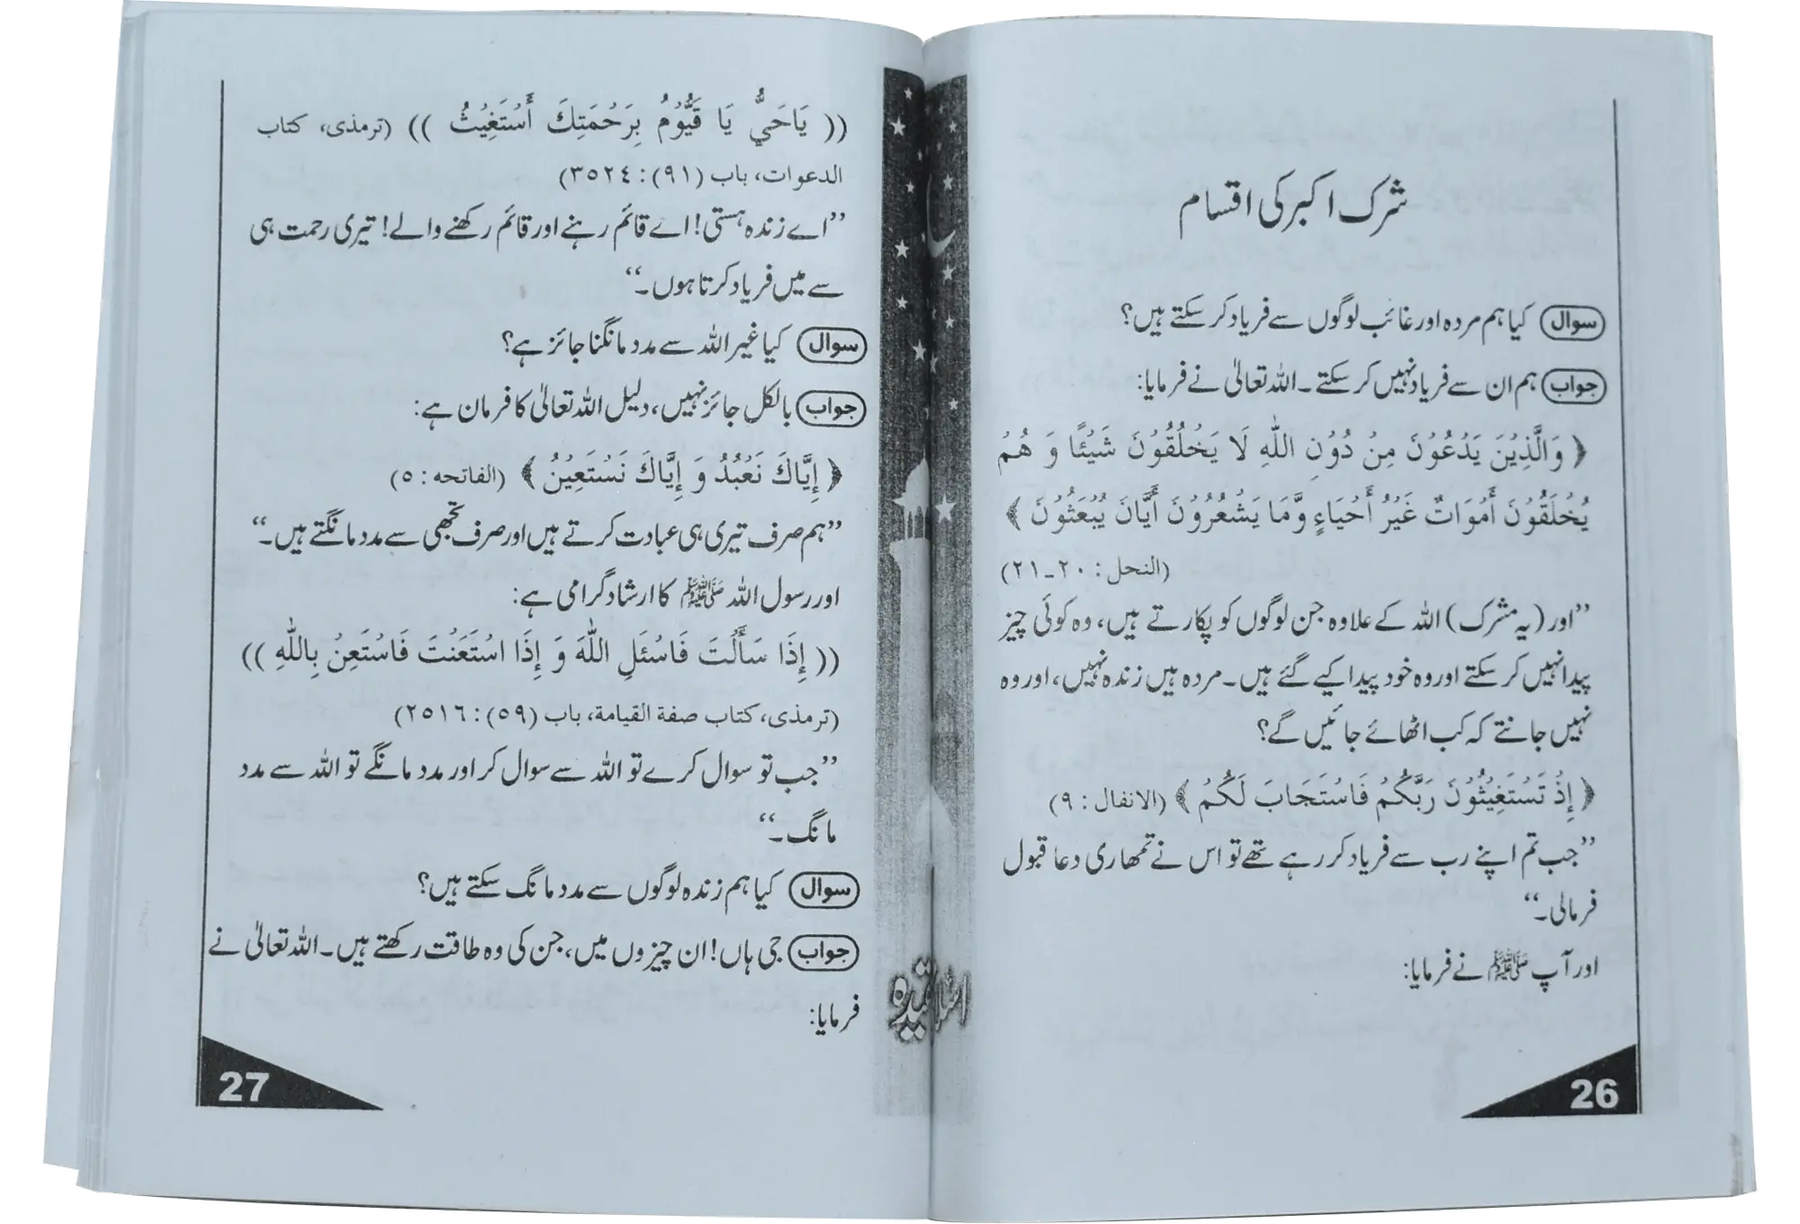 شرک اکبر کی اقسام
سوال کیا ہم مردہ اور غائب لوگوں سے فریاد کر سکتے ہیں؟
جواب ہم ان سے فریاد نہیں کر سکتے۔ اللہ تعالیٰ نے فرمایا:
﴿ وَالَّذِيْنَ يَدْعُوْنَ مِنْ دُوْنِ اللّٰهِ لَا يَخْلُقُوْنَ شَيْئًا وَ هُمْ
يُخْلَقُوْنَ أَمْوَاتٌ غَيْرُ أَحْيَاءٍ وَّمَا يَشْعُرُوْنَ أَيَّانَ يُبْعَثُوْنَ ﴾
(النحل: ۲۰۔۲۱)
’’اور (یہ مشرک) اللہ کے علاوہ جن لوگوں کو پکارتے ہیں، وہ کوئی چیز
پیدا نہیں کر سکتے اور وہ خود پیدا کیے گئے ہیں۔ مردہ ہیں زندہ نہیں، اور وہ
نہیں جانتے کہ کب اٹھائے جائیں گے؟
﴿ إِذْ تَسْتَغِيْثُوْنَ رَبَّكُمْ فَاسْتَجَابَ لَكُمْ ﴾ (الانفال: ۹)
’’جب تم اپنے رب سے فریاد کر رہے تھے تو اس نے تمھاری دعا قبول
فرمالی۔‘‘
اور آپ ﷺ نے فرمایا:
26
(( يَاحَيُّ يَا قَيُّوْمُ بِرَحْمَتِكَ أَسْتَغِيْثُ )) (ترمذی، کتاب
الدعوات، باب (۹۱): ۳۵۲٤)
’’اے زندہ ہستی! اے قائم رہنے اور قائم رکھنے والے! تیری رحمت ہی
سے میں فریاد کرتا ہوں۔‘‘
سوال کیا غیر اللہ سے مدد مانگنا جائز ہے؟
جواب بالکل جائز نہیں، دلیل اللہ تعالیٰ کا فرمان ہے:
﴿ إِيَّاكَ نَعْبُدُ وَ إِيَّاكَ نَسْتَعِيْنُ ﴾ (الفاتحہ: ۵)
’’ہم صرف تیری ہی عبادت کرتے ہیں اور صرف تجھی سے مدد مانگتے ہیں۔‘‘
اور رسول اللہ ﷺ کا ارشاد گرامی ہے:
(( إِذَا سَأَلْتَ فَاسْئَلِ اللّٰهَ وَ إِذَا اسْتَعَنْتَ فَاسْتَعِنْ بِاللّٰهِ ))
(ترمذی، کتاب صفة القیامة، باب (٥٩): ٢٥١٦)
’’جب تو سوال کرے تو اللہ سے سوال کر اور مدد مانگے تو اللہ سے مدد
مانگ۔‘‘
سوال کیا ہم زندہ لوگوں سے مدد مانگ سکتے ہیں؟
جواب جی ہاں! ان چیزوں میں، جن کی وہ طاقت رکھتے ہیں۔ اللہ تعالیٰ نے
فرمایا:
27